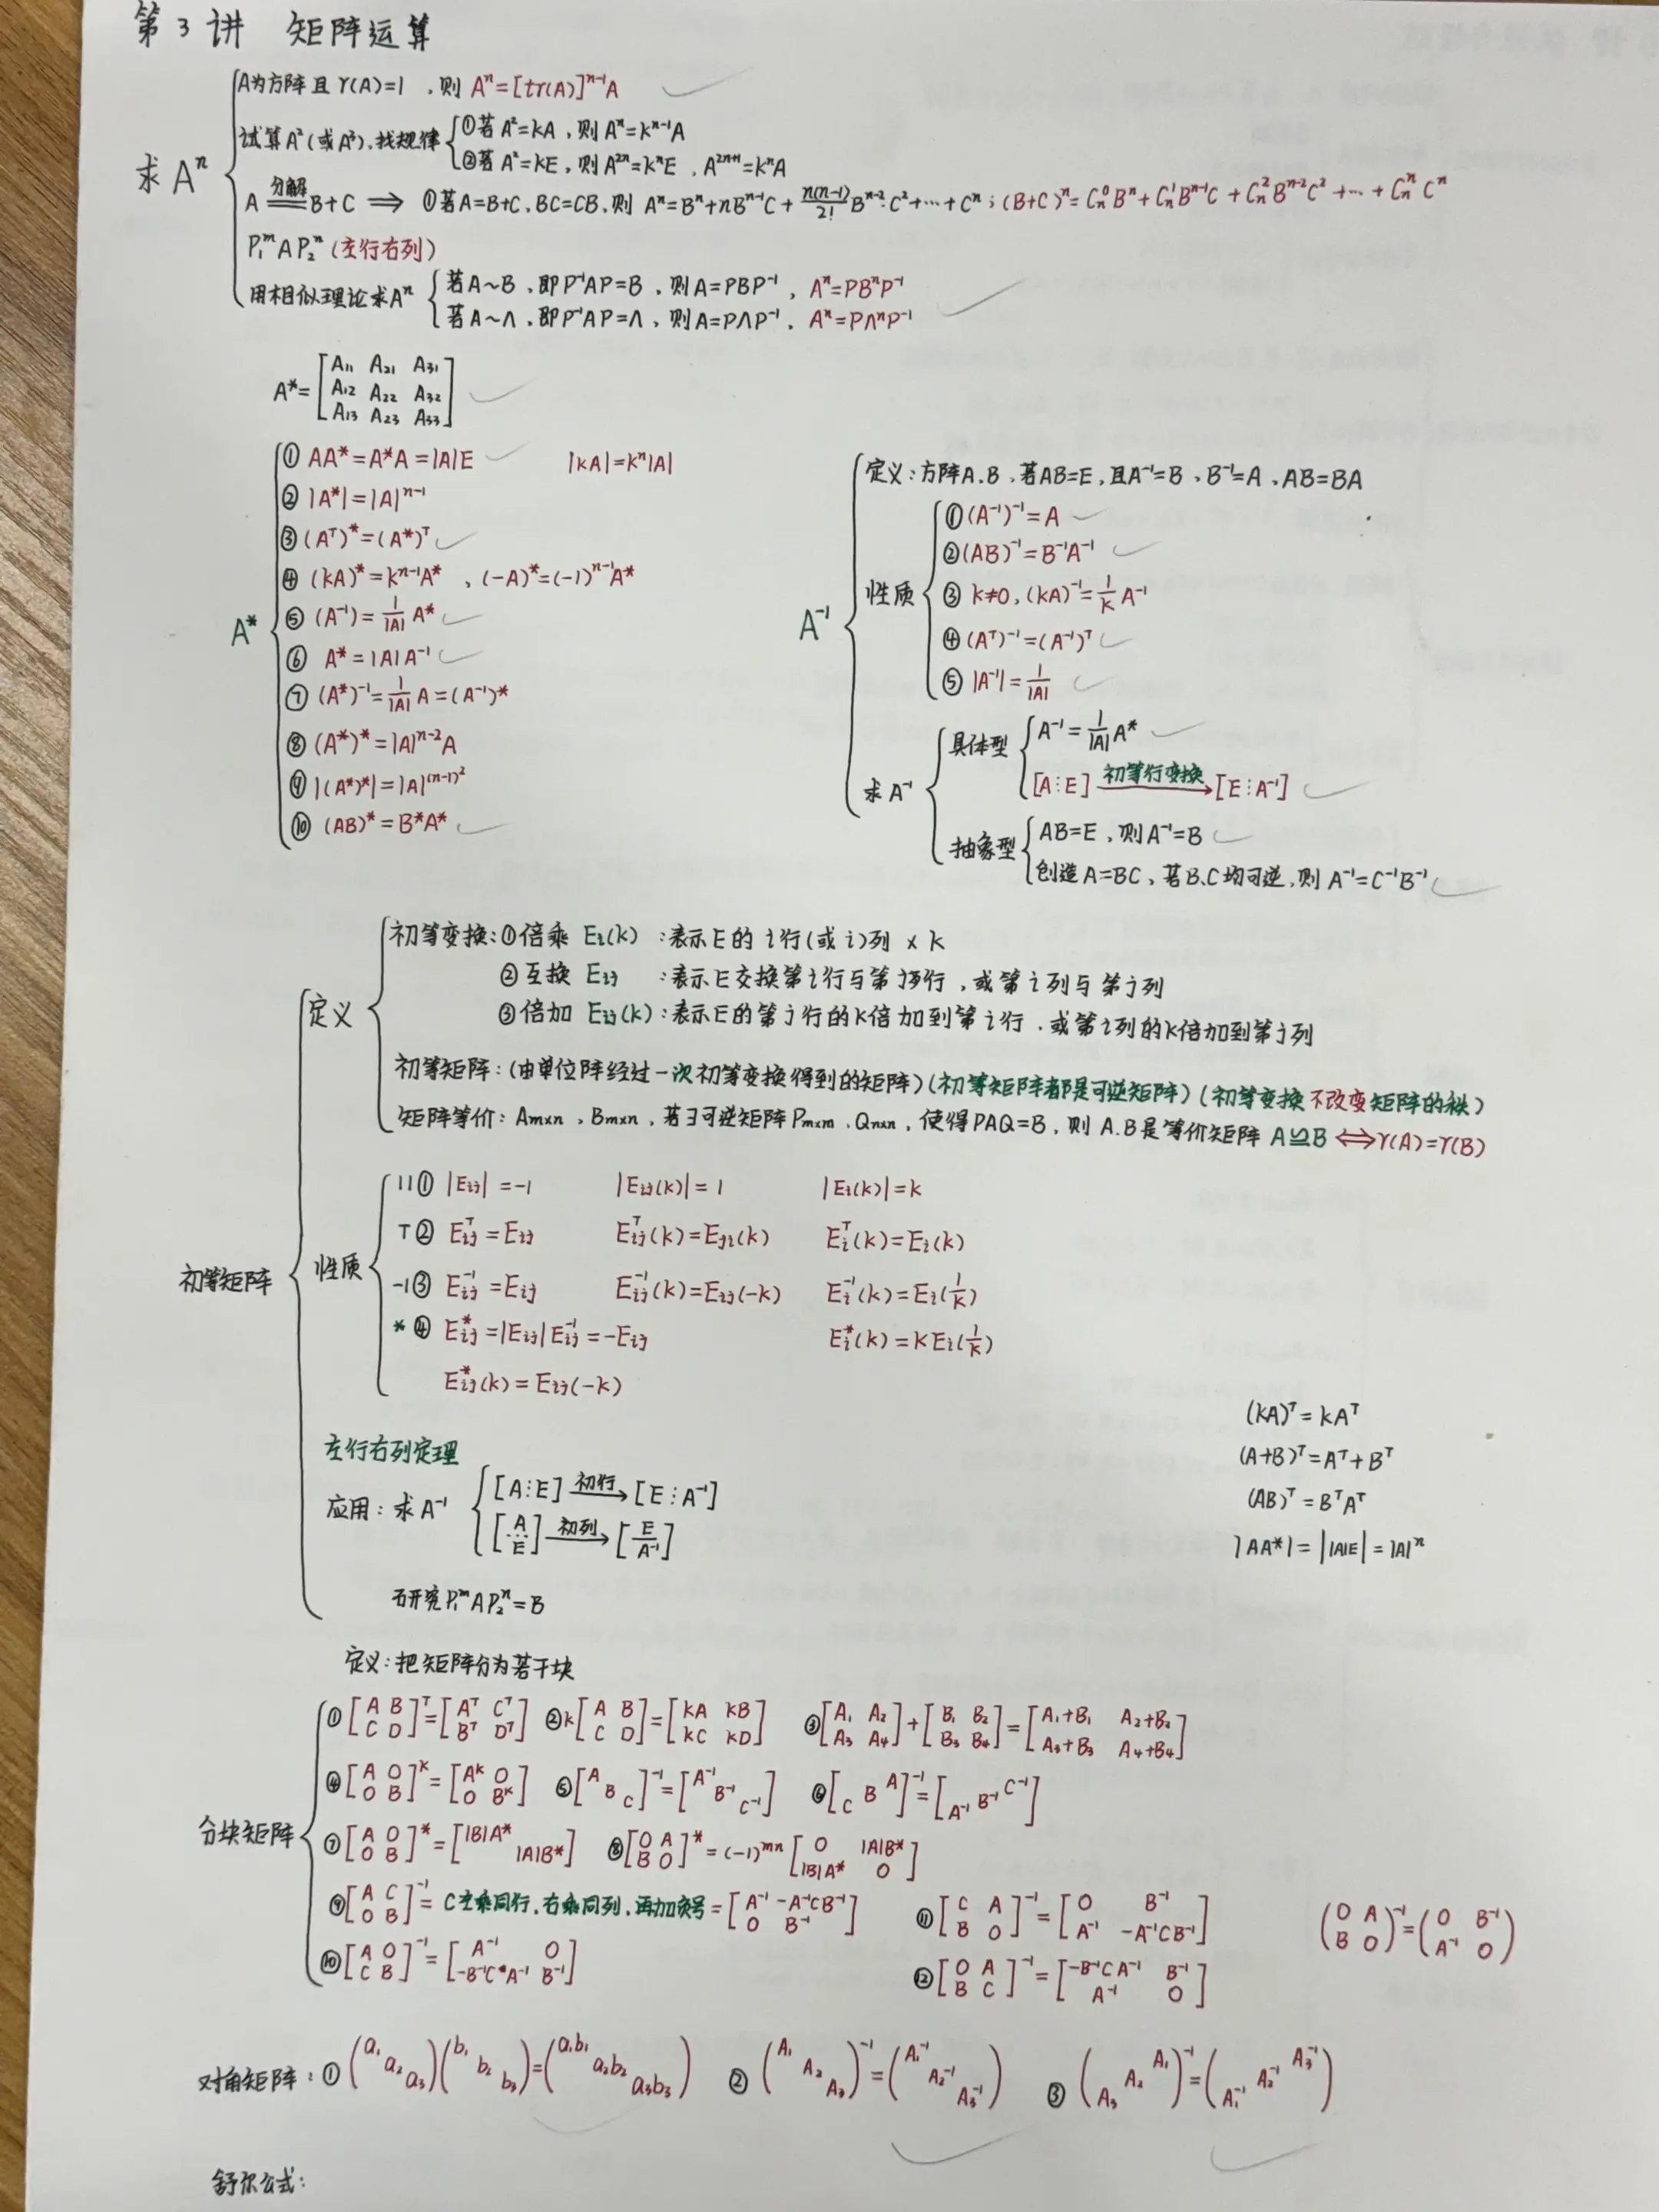 第3讲 矩阵运算
求Aⁿ
A为方阵且r(A)=1,则 Aⁿ=[tr(A)]ⁿ⁻¹A
试算A²(或A³),找规律
①若A²=kA,则Aⁿ=kⁿ⁻¹A
②若A²=kE,则A²ⁿ=kⁿE,A²ⁿ⁺¹=kⁿA
A =分解= B+C ⟹ ①若A=B+C,BC=CB,则 Aⁿ=Bⁿ+nBⁿ⁻¹C+n(n-1)/2! Bⁿ⁻²·C²+…+Cⁿ;(B+C)ⁿ=C_n^0Bⁿ+C_n^1Bⁿ⁻¹C+C_n^2Bⁿ⁻²C²+…+C_n^nCⁿ
P₁ᵐAP₂ⁿ(左行右列)
用相似理论求Aⁿ
若A~B,即P⁻¹AP=B,则A=PBP⁻¹,Aⁿ=PBⁿP⁻¹
若A~Λ,即P⁻¹AP=Λ,则A=PΛP⁻¹,Aⁿ=PΛⁿP⁻¹
A*=[A₁₁ A₂₁ A₃₁
A₁₂ A₂₂ A₃₂
A₁₃ A₂₃ A₃₃]
A*
①AA*=A*A=|A|E |kA|=kⁿ|A|
②|A*|=|A|ⁿ⁻¹
③(Aᵀ)*=(A*)ᵀ
④(kA)*=kⁿ⁻¹A*,(-A)*=(-1)ⁿ⁻¹A*
⑤(A⁻¹)=1/|A| A*
⑥A*=|A|A⁻¹
⑦(A*)⁻¹=1/|A| A=(A⁻¹)*
⑧(A*)*=|A|ⁿ⁻²A
⑨|(A*)*|=|A|^(n-1)²
⑩(AB)*=B*A*
A⁻¹
定义:方阵A.B,若AB=E,且A⁻¹=B,B⁻¹=A,AB=BA
性质
①(A⁻¹)⁻¹=A
②(AB)⁻¹=B⁻¹A⁻¹
③k≠0,(kA)⁻¹=1/k A⁻¹
④(Aᵀ)⁻¹=(A⁻¹)ᵀ
⑤|A⁻¹|=1/|A|
求A⁻¹
具体型
A⁻¹=1/|A| A*
[A⋮E] 初等行变换→ [E⋮A⁻¹]
抽象型
AB=E,则A⁻¹=B
创造A=BC,若B、C均可逆,则A⁻¹=C⁻¹B⁻¹
初等矩阵
定义
初等变换:①倍乘 Eᵢ(k):表示E的i行(或i)列×k
②互换 Eᵢⱼ:表示E交换第i行与第j行,或第i列与第j列
③倍加 Eᵢⱼ(k):表示E的第j行的k倍加到第i行,或第i列的k倍加到第j列
初等矩阵:(由单位阵经过一次初等变换得到的矩阵)(初等矩阵都是可逆矩阵)(初等变换不改变矩阵的秩)
矩阵等价:Am×n,Bm×n,若∃可逆矩阵Pm×m,Qn×n,使得PAQ=B,则A.B是等价矩阵 A≌B⟺r(A)=r(B)
性质
||①|Eᵢⱼ|=-1 |Eᵢⱼ(k)|=1 |Eᵢ(k)|=k
T②Eᵢⱼᵀ=Eᵢⱼ Eᵢⱼᵀ(k)=Eⱼᵢ(k) Eᵢᵀ(k)=Eᵢ(k)
-1③Eᵢⱼ⁻¹=Eᵢⱼ Eᵢⱼ⁻¹(k)=Eᵢⱼ(-k) Eᵢ⁻¹(k)=Eᵢ(1/k)
*④Eᵢⱼ*=|Eᵢⱼ|Eᵢⱼ⁻¹=-Eᵢⱼ Eᵢ*(k)=kEᵢ(1/k)
Eᵢⱼ*(k)=Eᵢⱼ(-k)
左行右列定理
应用:求A⁻¹
[A⋮E] 初行→ [E⋮A⁻¹]
[A/E] 初列→ [E/A⁻¹]
研究P₁ᵐAP₂ⁿ=B
(kA)ᵀ=kAᵀ
(A+B)ᵀ=Aᵀ+Bᵀ
(AB)ᵀ=BᵀAᵀ
|AA*|=||A|E|=|A|ⁿ
分块矩阵
定义:把矩阵分为若干块
①[A B; C D]ᵀ=[Aᵀ Cᵀ; Bᵀ Dᵀ] ②k[A B; C D]=[kA kB; kC kD] ③[A₁ A₂; A₃ A₄]+[B₁ B₂; B₃ B₄]=[A₁+B₁ A₂+B₂; A₃+B₃ A₄+B₄]
④[A O; O B]ᵏ=[Aᵏ O; O Bᵏ] ⑤[A B C]⁻¹=[A⁻¹ B⁻¹ C⁻¹] ⑥[C B A]⁻¹=[A⁻¹ B⁻¹ C⁻¹]
⑦[A O; O B]*=[|B|A* |A|B*] ⑧[O A; B O]*=(-1)ᵐⁿ[O |A|B*; |B|A* O]
⑨[A C; O B]⁻¹=C左乘同行,右乘同列,再加负号=[A⁻¹ -A⁻¹CB⁻¹; O B⁻¹] ⑪[C A; B O]⁻¹=[O B⁻¹; A⁻¹ -A⁻¹CB⁻¹] (O A; B O)⁻¹=(O B⁻¹; A⁻¹ O)
⑩[A O; C B]⁻¹=[A⁻¹ O; -B⁻¹CA⁻¹ B⁻¹] ⑫[O A; B C]⁻¹=[-B⁻¹CA⁻¹ B⁻¹; A⁻¹ O]
对角矩阵:①(a₁ a₂ a₃)(b₁ b₂ b₃)=(a₁b₁ a₂b₂ a₃b₃) ②(A₁ A₂ A₃)⁻¹=(A₁⁻¹ A₂⁻¹ A₃⁻¹) ③(A₃ A₂ A₁)⁻¹=(A₁⁻¹ A₂⁻¹ A₃⁻¹)
舒尔公式: